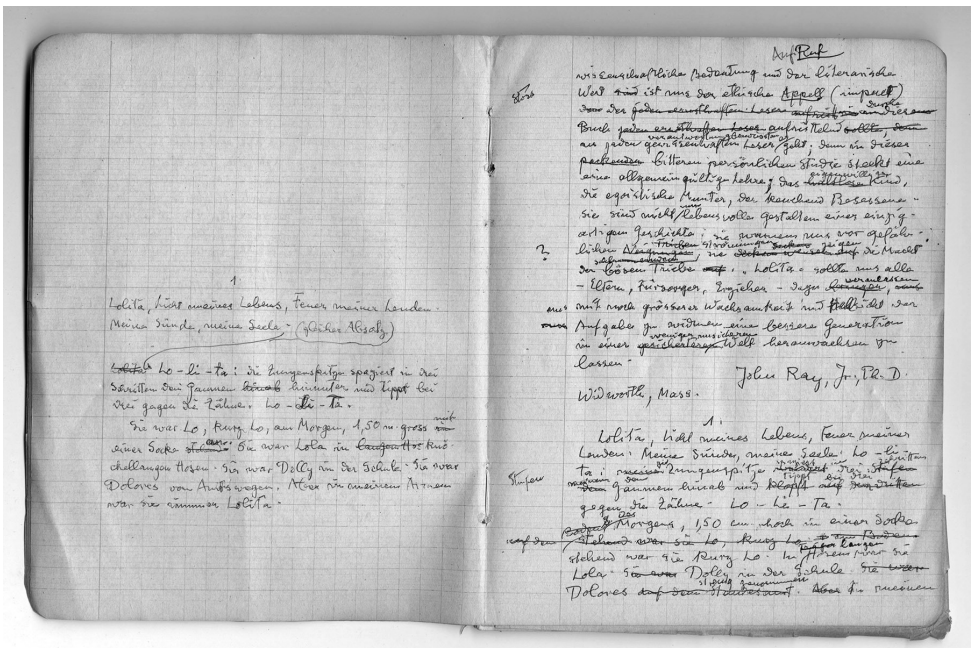 1
Lolita, Licht meines Lebens, Feuer meiner Lenden.
Meine Sünde, meine Seele. (gleicher Absatz)
Lolita Lo-li-ta: die Zungenspitze spaziert in drei
Schritten den Gaumen hinab hinunter und tippt bei
drei gegen die Zähne. Lo-Li-Ta.
Sie war Lo, kurz Lo, am Morgen, 1,50 m gross mit
einer Socke Sie war Lola in langen Hos knö-
chellangen Hosen. Sie war Dolly in der Schule. Sie war
Dolores von Amts wegen. Aber in meinen Armen
war sie immer Lolita.
Auf Ruf
wissenschaftliche Bedeutung und der literarische
Stoss
Wert sind ist uns der ethische Appell (impact)
den der jeden ernsthaften Leser durch dieses
Buch jeden ernsthaften Leser aufrüttelnd sollte, denn
verantwortungsbewussten
an jeden gewissenhaften Leser geht; denn in dieser
packenden bitteren persönlichen Studie steckt eine
eine allgemeingültige Lehre; das eigenwillige Kind,
die egoistische Mutter, der keuchend Besessene -
sie sind nicht nur lebensvolle Gestalten einer einzig-
artigen Geschichte: sie warnen uns vor gefähr-
?
lichen sie zeigen die Macht
der bösen Triebe auf. "Lolita" sollte uns alle
- Eltern, Fürsorger, Erzieher - dazu veranlassen
uns mit noch grösserer Wachsamkeit und Hellsicht der
Aufgabe zu widmen eine bessere Generation
weniger unsicheren
in einer gesicherteren Welt heranwachsen zu
lassen.
John Ray, Jr., Ph.D.
Widworth, Mass.
1.
Lolita, Licht meines Lebens, Feuer meiner
Lenden. Meine Sünde, meine Seele. Lo-li-
ta: Zungenspitze drei Stufen
Stufen
Gaumen hinab und klopft auf der dritten
tippt bei drei
gegen die Zähne. Lo-Li-Ta.
Des Morgens, 1,50 cm hoch in einer Socke
auf dem stehend war sie Lo, kurz Lo
stehend war sie kurz Lo. In Hosen war sie
Lola. Sie war Dolly in der Schule. Sie war
streng genommen
Dolores auf dem Standesamt. Aber in meinen